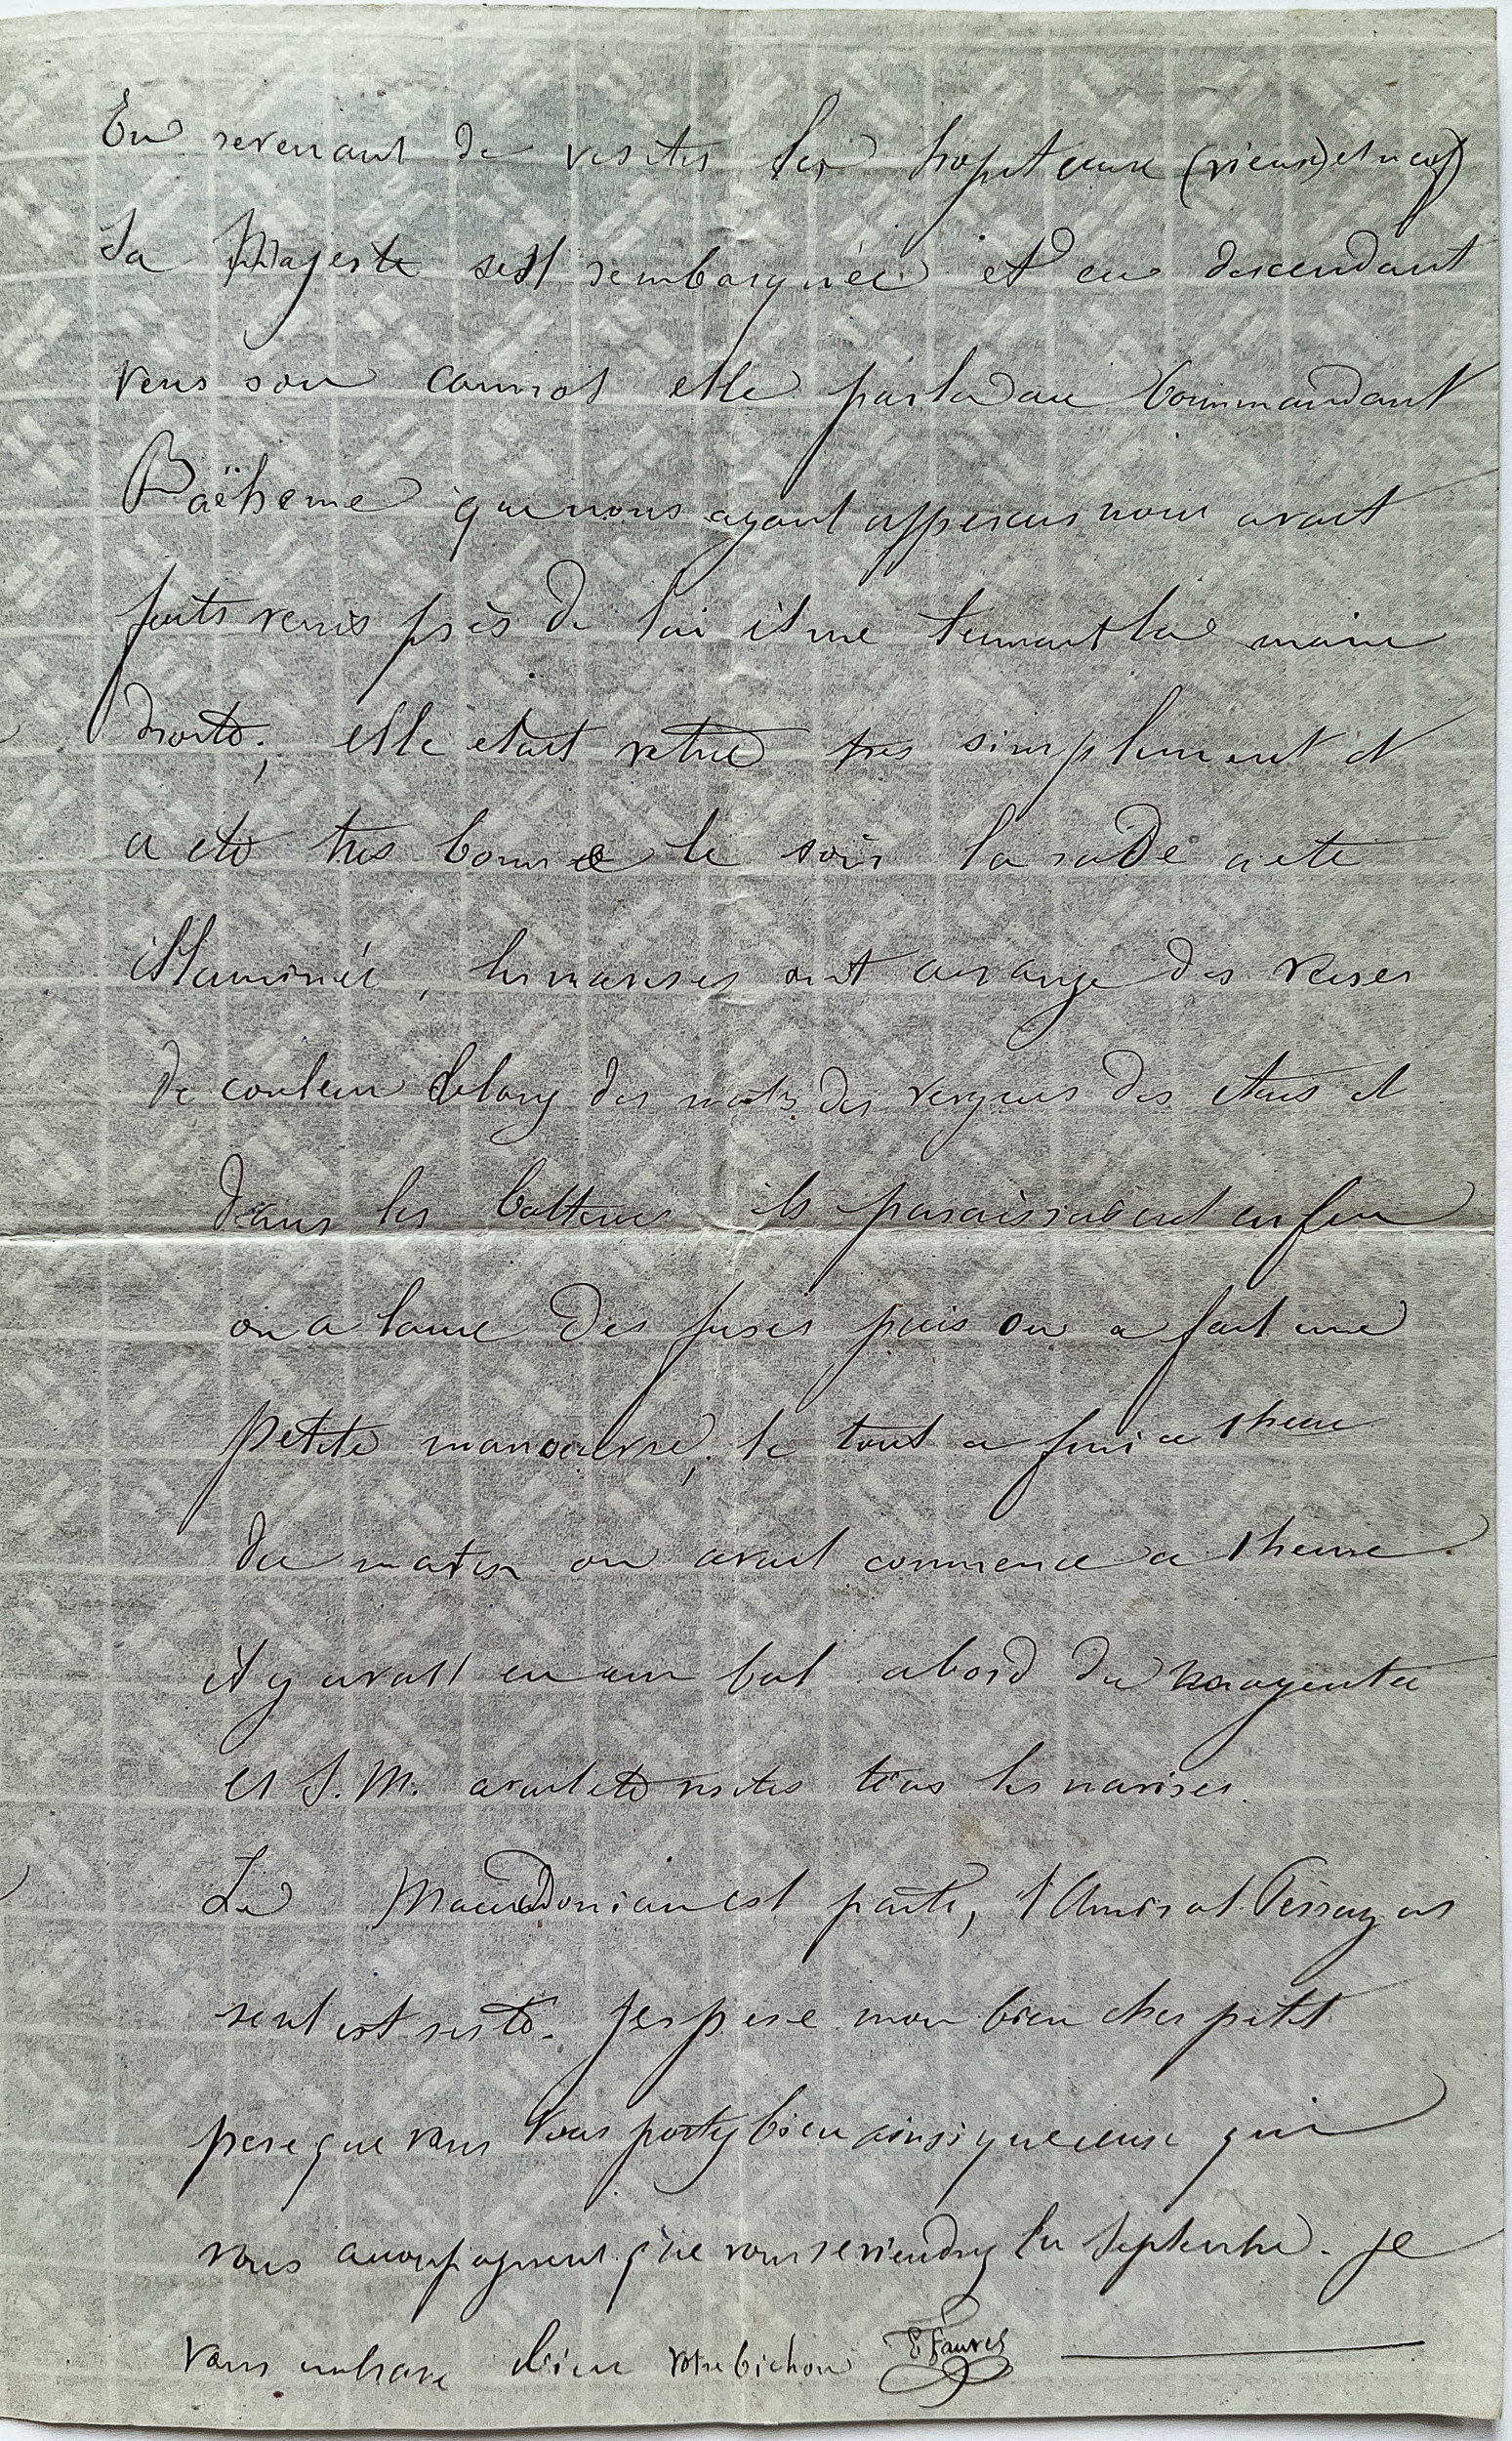 En revenant de visiter les hopitaux (vieux) et neuf)
Sa Majeste sest rembarquée et en descendant
vers son cannot elle parla au Commandant
Baëheme qui nous ayant appercus nous avait
faits venir près de lui il me tennait la main
droite; elle etait vetue tres simplement et
a ete tres bonne le soir la rade a ete
illuminée, les navires ont arrange des
de couleur le long des mats des vergues des etais et
dans les batteries ils paraissaient en feu
on a lance des fusées puis on a fait une
petite manoeuvre, le tout a fini a 1 heure
du matin on avait commence a 1 heure.
il y avait eu un bal abord du magenta
et S. M. avait ete visiter tous les navires.
Le Macedonian est parti, l'Amiral
seul est resté. Jespere mon bien cher petit
pere que vous vous portez bien ainsi que ceux qui
vous accompagnent que vous reviendrez en Septembre. Je
vous embrasse bien votre bichon E Fauvel